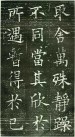 取舍萬殊静躁
不同當其欣於
所遇暫得於己